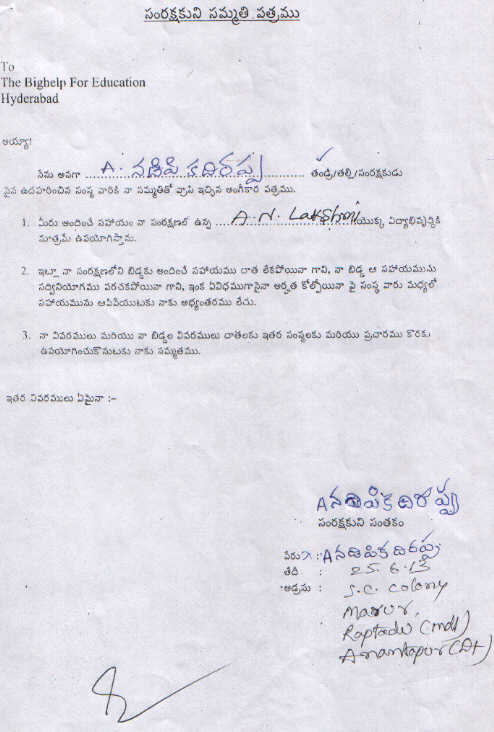 సంరక్షకుని సమ్మతి పత్రము
To
The Bighelp For Education
Hyderabad
అయ్యా!
నేను అనగా ... A. నడిపి కదిరప్ప ... తండ్రి/తల్లి/సంరక్షకుడు
పైన ఉదహరించిన సంస్థ వారికి నా సమ్మతితో వ్రాసి ఇచ్చిన అంగీకార పత్రము.
1. మీరు అందించే సహాయం నా సంరక్షణలో ఉన్న ... A. N. Lakshmi యొక్క విద్యాభివృద్ధికి
మాత్రమే ఉపయోగిస్తాను.
2. ఇట్లా నా సంరక్షణలోని బిడ్డకు అందించే సహాయము దాత లేకపోయినా గాని, నా బిడ్డ ఆ సహాయమును
సద్వినియోగము పరచకపోయినా గాని, ఇంక ఏవిధముగానైనా అర్హత కోల్పోయినా పై సంస్థ వారు మధ్యలో
సహాయమును ఆపివేయుటకు నాకు అభ్యంతరము లేదు.
3. నా వివరములు మరియు నా బిడ్డల వివరములు దాతలకు ఇతర సంస్థలకు మరియు ప్రచారము కొరకు
ఉపయోగించుకొనుటకు నాకు సమ్మతము.
ఇతర వివరములు ఏమైనా :-
A నడిపి కదిరప్ప
సంరక్షకుని సంతకం
పేరు : A నడిపి కదిరప్ప
తేది : 25.6.13
అడ్రసు : S.C. Colony
Marur,
Raptadu (mdl)
Anantapur (Dt)